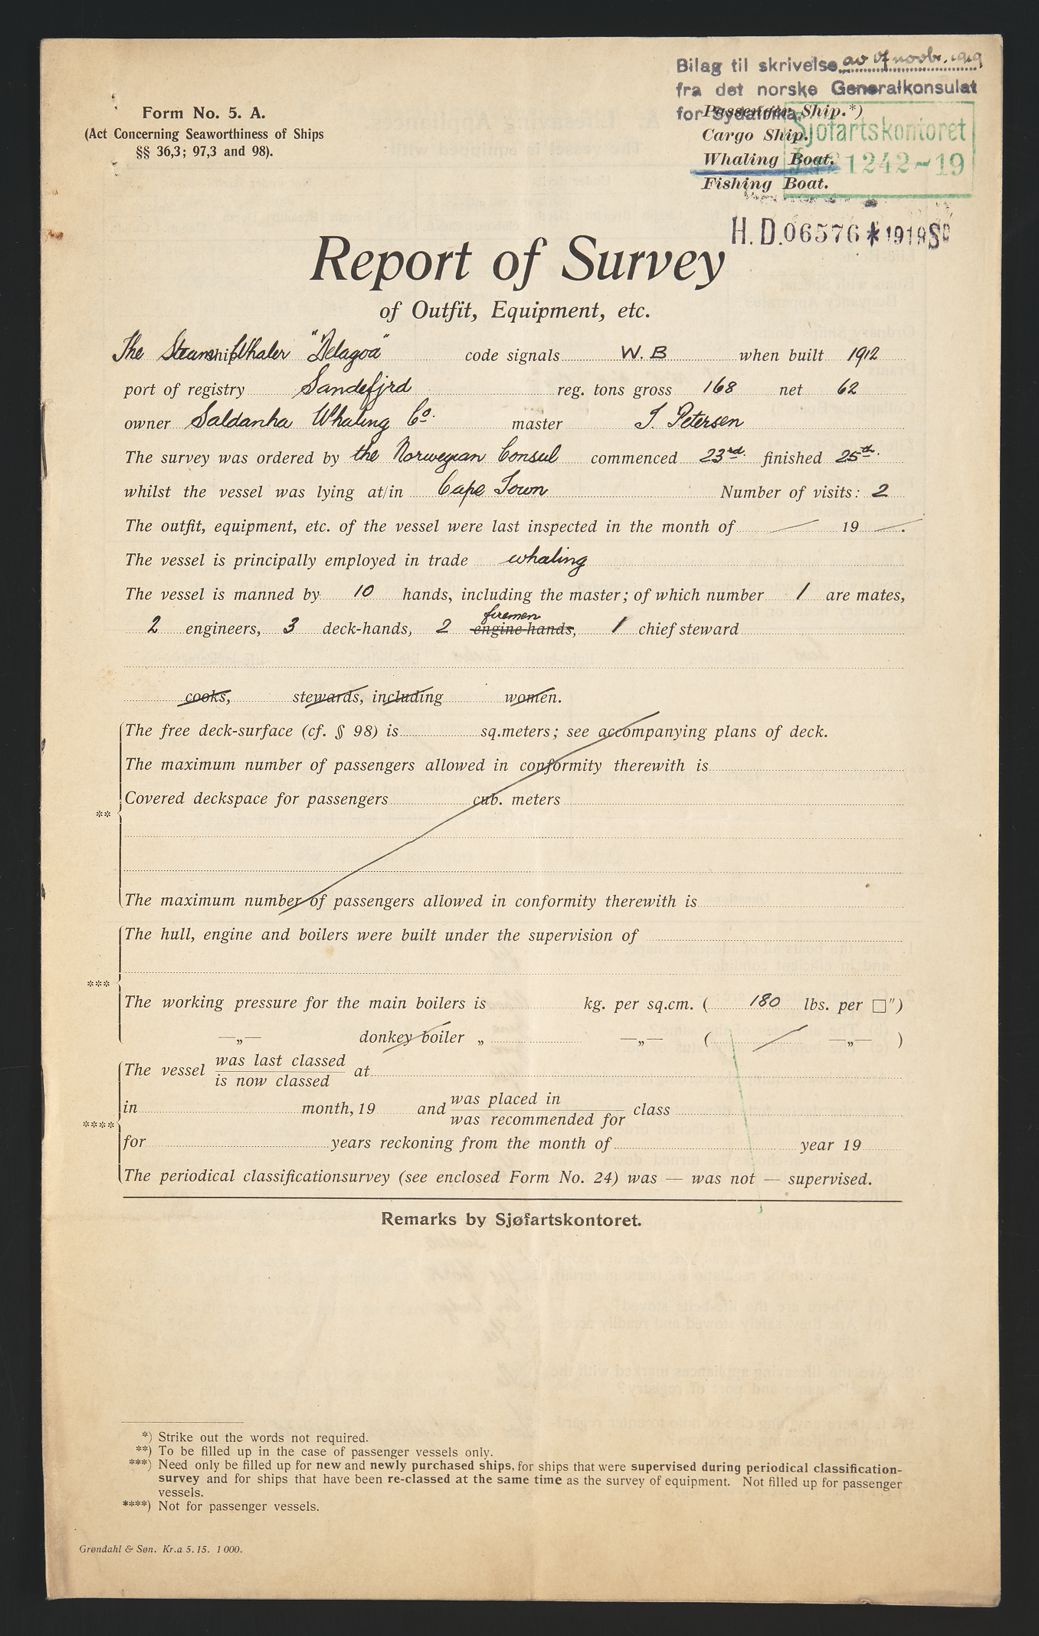 Bilag til skrivelse av 17 novbr. 1919
fra det norske Generalkonsulat
for Sydafrika.
Form No. 5. A.
(Act Concerning Seaworthiness of Ships
§§ 36,3; 97,3 and 98).
Passenger Ship.*)
Cargo Ship.
Whaling Boat.
Fishing Boat.
Sjøfartskontoret
1242-19
H.D.06576*1919
Report of Survey
of Outfit, Equipment, etc.
The Steamship Whaler "Delagoa" code signals W.B when built 1912
port of registry Sandefjrd reg. tons gross 168 net 62
owner Saldanha Whaling Co. master J. Petersen
The survey was ordered by the Norwegian Consul commenced 23rd. finished 25th.
whilst the vessel was lying at/in Cape Town Number of visits: 2
The outfit, equipment, etc. of the vessel were last inspected in the month of — 19 —.
The vessel is principally employed in trade whaling
The vessel is manned by 10 hands, including the master; of which number 1 are mates,
2 engineers, 3 deck-hands, 2 engine-hands, firemen 1 chief steward
cooks, stewards, including women.
The free deck-surface (cf. § 98) is sq.meters; see accompanying plans of deck.
The maximum number of passengers allowed in conformity therewith is
Covered deckspace for passengers cub. meters
**
The maximum number of passengers allowed in conformity therewith is
The hull, engine and boilers were built under the supervision of
***
The working pressure for the main boilers is kg. per sq.cm. ( 180 lbs. per □")
—„— donkey boiler „ —„— ( —„— )
The vessel was last classed
is now classed at
in month, 19 and was placed in
was recommended for class
****
for years reckoning from the month of year 19
The periodical classificationsurvey (see enclosed Form No. 24) was — was not — supervised.
Remarks by Sjøfartskontoret.
*) Strike out the words not required.
**) To be filled up in the case of passenger vessels only.
***) Need only be filled up for new and newly purchased ships, for ships that were supervised during periodical classification-
survey and for ships that have been re-classed at the same time as the survey of equipment. Not filled up for passenger
vessels.
****) Not for passenger vessels.
Grøndahl & Søn. Kr.a 5. 15. 1 000.